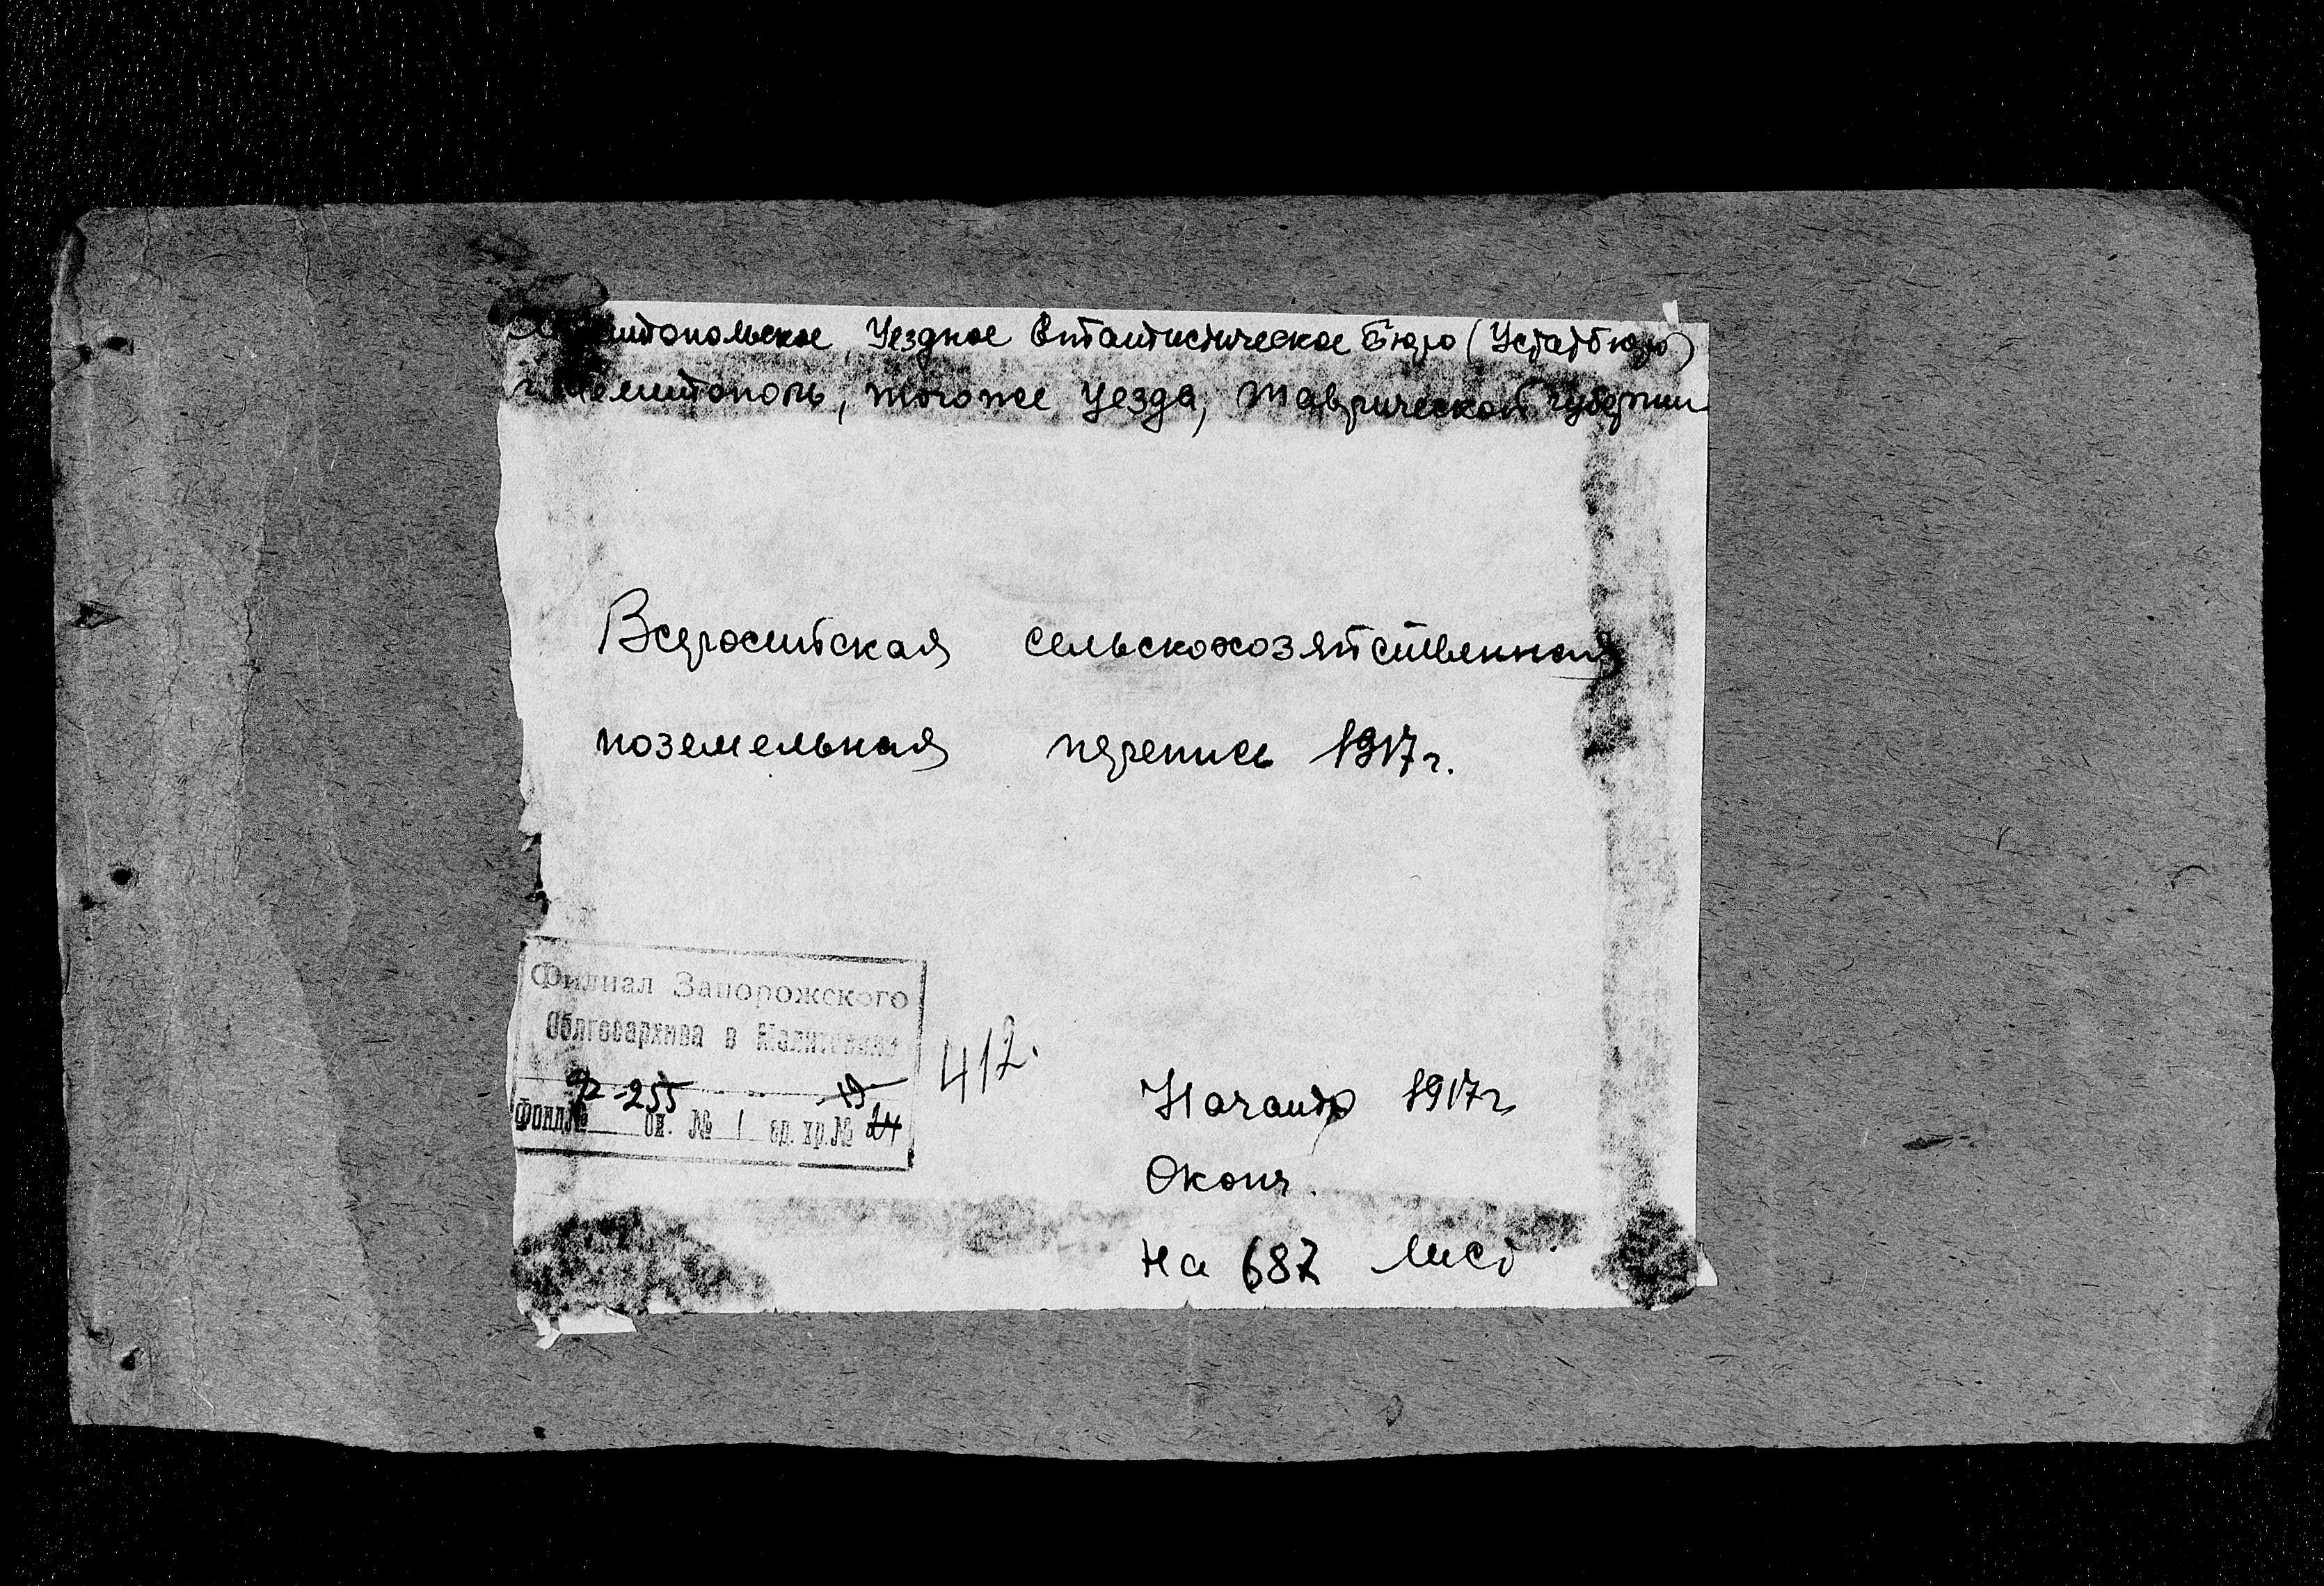 Мелитопольское Уездное Статистическое Бюро (Устатбюро)
г. Мелитополь, того же уезда, Таврической губернии
Всеросийская сельскохозяйственная
поземельная перепись 1917 г.
Филиал Запорожского
Облгосархива в Мелитополе
412.
Р-255 19
Фонд № оп. № 1 ед. хр. № 24
Начато 1917 г.
Оконч.
На 687 лист.